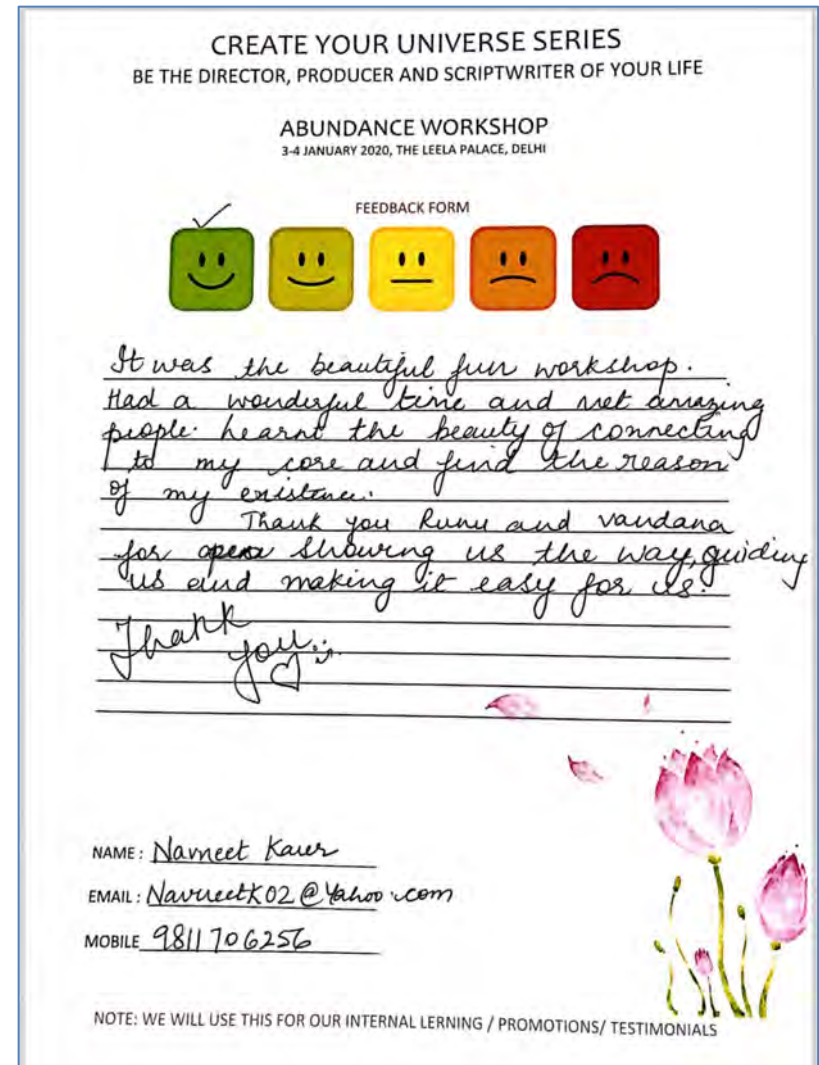 CREATE YOUR UNIVERSE SERIES
BE THE DIRECTOR, PRODUCER AND SCRIPTWRITER OF YOUR LIFE
ABUNDANCE WORKSHOP
3-4 JANUARY 2020, THE LEELA PALACE, DELHI
FEEDBACK FORM
It was the beautiful fun workshop.
Had a wonderful time and met amazing
people. Learnt the beauty of connecting
to my core and find the reason
of my existence.
Thank you Runu and Vandana
for showing us the way, guiding
us and making it easy for us.
Thank
you
NAME : Navneet Kaur
EMAIL : NavneetK02@Yahoo.com
MOBILE 9811706256
NOTE: WE WILL USE THIS FOR OUR INTERNAL LERNING / PROMOTIONS/ TESTIMONIALS